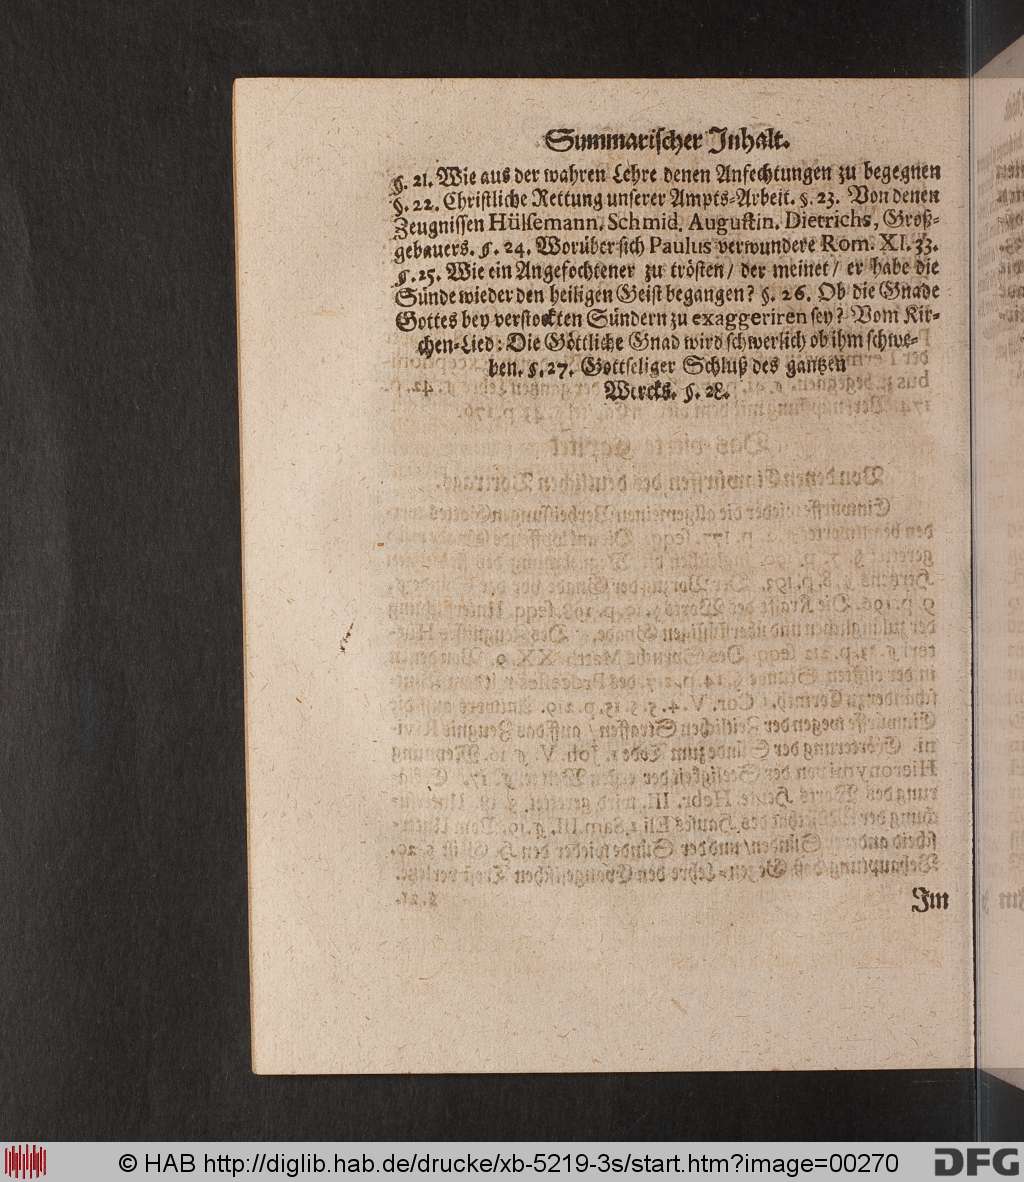 Summarischer Inhalt.
§. 21. Wie aus der wahren Lehre denen Anfechtungen zu begegnen
§. 22. Christliche Rettung unserer Ampts-Arbeit. §. 23. Von denen
Zeugnissen Hülsemann. Schmid. Augustin. Dietrichs, Groß-
gebauers. §. 24. Worüber sich Paulus verwundere Rom. XI. 33.
§. 25. Wie ein Angefochtener zu trösten / der meinet / er habe die
Sünde wieder den heiligen Geist begangen? §. 26. Ob die Gnade
Gottes bey verstockten Sündern zu exaggeriren sey? Vom Kir-
chen-Lied: Die Göttliche Gnad wird schwerlich ob ihm schwe-
ben. §. 27. Gottseliger Schluß des gantzen
Wercks. §. 28.
Im
© HAB http://diglib.hab.de/drucke/xb-5219-3s/start.htm?image=00270
DFG